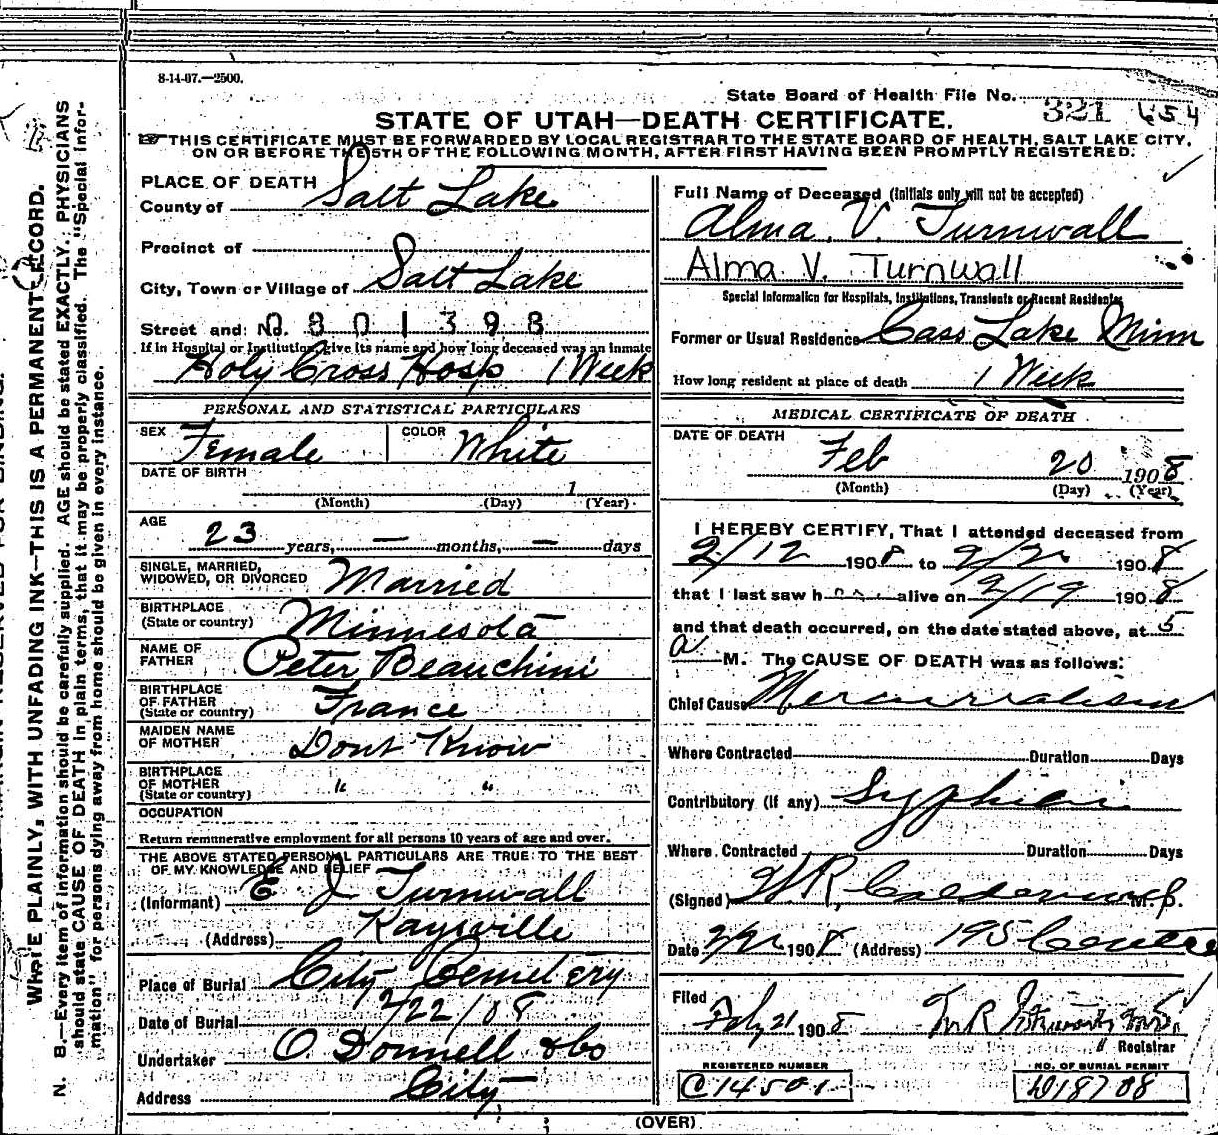 8-14-07.—2500.
State Board of Health File No. 321 654
STATE OF UTAH—DEATH CERTIFICATE.
THIS CERTIFICATE MUST BE FORWARDED BY LOCAL REGISTRAR TO THE STATE BOARD OF HEALTH, SALT LAKE CITY,
ON OR BEFORE THE 5TH OF THE FOLLOWING MONTH, AFTER FIRST HAVING BEEN PROMPTLY REGISTERED:
WRITE PLAINLY, WITH UNFADING INK—THIS IS A PERMANENT RECORD.
N. B.—Every item of information should be carefully supplied. AGE should be stated EXACTLY. PHYSICIANS
should state CAUSE OF DEATH in plain terms, that it may be properly classified. The "Special Infor-
mation" for persons dying away from home should be given in every instance.
PLACE OF DEATH
County of Salt Lake
Precinct of
City, Town or Village of Salt Lake
Street and No. 0801398
If in Hospital or Institution, give its name and how long deceased was an inmate
Holy Cross Hosp 1 Week
PERSONAL AND STATISTICAL PARTICULARS
SEX Female COLOR White
DATE OF BIRTH
1
(Month) (Day) (Year)
AGE
23 years, — months, — days
SINGLE, MARRIED,
WIDOWED, OR DIVORCED Married
BIRTHPLACE
(State or country) Minnesota
NAME OF
FATHER Peter Beauchini
BIRTHPLACE
OF FATHER
(State or country) France
MAIDEN NAME
OF MOTHER Dont Know
BIRTHPLACE
OF MOTHER
(State or country) " "
OCCUPATION
Return remunerative employment for all persons 10 years of age and over.
THE ABOVE STATED PERSONAL PARTICULARS ARE TRUE TO THE BEST
OF MY KNOWLEDGE AND BELIEF
(Informant) E J Turnwall
(Address) Kaysville
Place of Burial City Cemetery
Date of Burial 2/22/08
Undertaker O Donnell &Co
Address City
Full Name of Deceased (Initials only will not be accepted)
Alma V. Turnwall
Alma V. Turnwall
Special Information for Hospitals, Institutions, Transients or Recent Residents
Former or Usual Residence Cass Lake Minn
How long resident at place of death 1 Week
MEDICAL CERTIFICATE OF DEATH
DATE OF DEATH
Feb 20 1908
(Month) (Day) (Year)
I HEREBY CERTIFY, That I attended deceased from
2/12 1908 to 2/20 1908
that I last saw her alive on 2/19 1908
and that death occurred, on the date stated above, at 5
a M. The CAUSE OF DEATH was as follows:
Chief Cause Mercurialism
Where Contracted Duration Days
Contributory (If any) Syphilis
Where Contracted Duration Days
(Signed) W R Calderwood M.D.
Date 1908 (Address) 195 Centre
Filed
Feby 21 1908
Registrar
REGISTERED NUMBER
C 14501
NO. OF BURIAL PERMIT
D18708
(OVER)